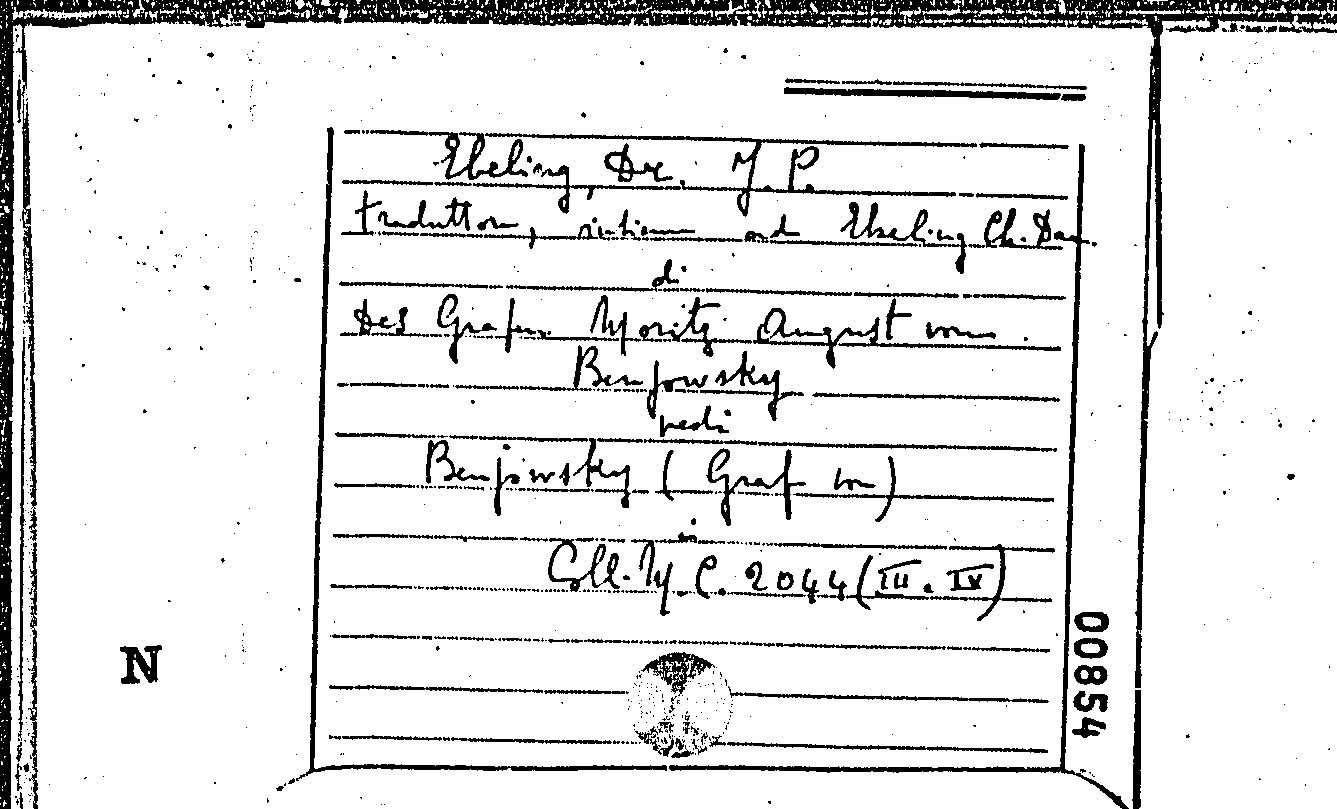 Ebeling, Dr. J. P.
traduttore, insieme ad Ebeling Ch. Dan.
di
Des Grafen Moritz August von
Benjowsky
vedi
Benjowsky (Graf von)
in
Coll. M. C. 2044 (III. IV)
N
00854